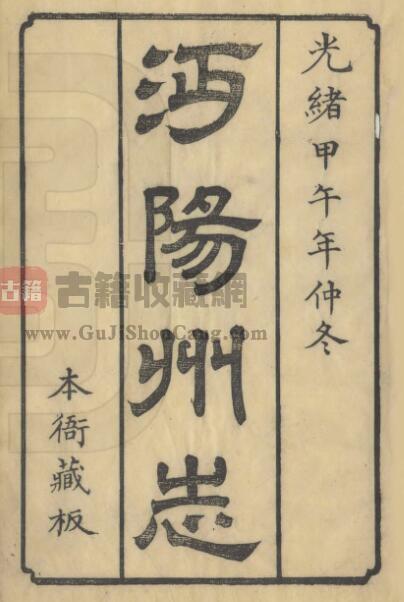 光緒甲午年仲冬
沔陽州志
本衙藏板
古籍
古籍收藏網
www.GuJiShouCang.com